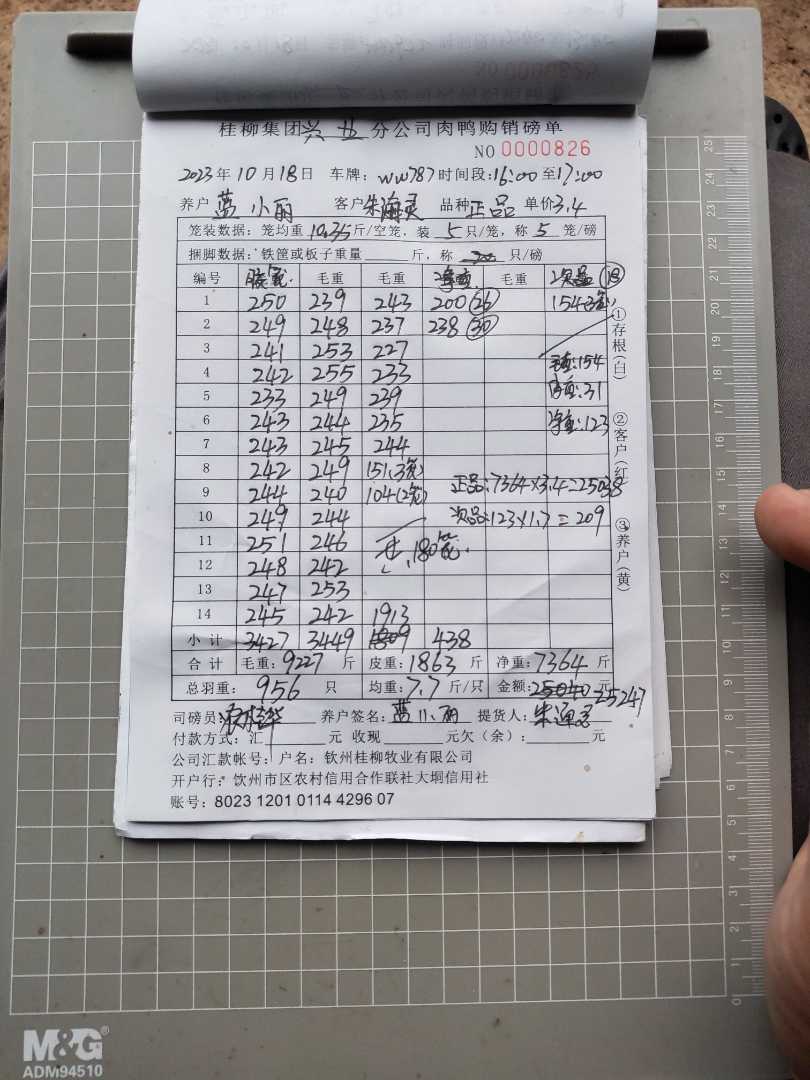 桂柳集团兴业分公司肉鸭购销磅单
NO 0000826
2023年10月18日 车牌:WW787时间段:16:00至17:00
养户 蓝小丽 客户 朱海灵 品种 正品 单价3.4
笼装数据:笼均重10.35斤/空笼,装 5 只/笼,称 5 笼/磅
捆脚数据:铁筐或板子重量 斤,称 只/磅
编号 毛重 毛重 净重 毛重 次品 (18)
1 250 239 243 200 (26) 154(3笼)
2 249 248 237 238 (30)
3 241 253 227
4 242 255 233 毛重:154
5 233 249 239 皮重:31
6 243 244 235 净重:123
7 243 245 244
8 242 249 151(3笼)
9 244 240 104(2笼) 正品:7364×3.4=25038
10 249 244 次品:123×1.7=209
11 251 246 180笼.
12 248 242
13 247 253
14 245 242 1913
小计 3427 3449 1809 438
合计 毛重:9227 斤 皮重:1863 斤 净重:7364 斤
总羽重: 956 只 均重:7.7 斤/只 金额:25040 元 25247
司磅员: 养户签名:蓝小丽 提货人:朱海灵
付款方式:汇 元 收现 元欠(余): 元
公司汇款帐号:户名:钦州桂柳牧业有限公司
开户行:钦州市区农村信用合作联社大垌信用社
账号:8023 1201 0114 4296 07
①存根(白)
②客户(红)
③养户(黄)
25
24
23
22
21
20
19
18
17
16
15
14
13
12
11
10
9
8
7
6
5
4
3
2
1
0
M&G
ADM94510